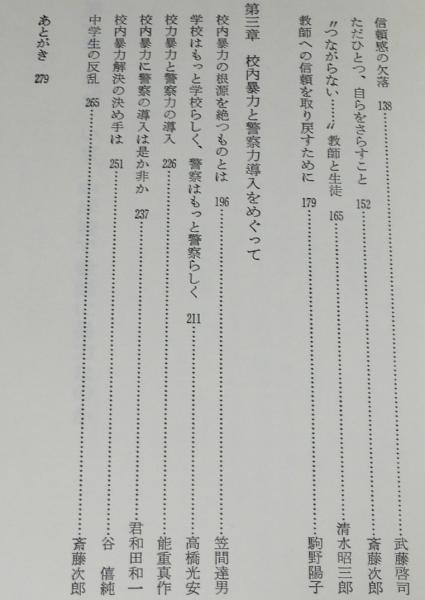 信頼感の欠落 138 武藤啓司
ただひとつ、自らをさらすこと 152 斎藤次郎
〝つながらない……〟教師と生徒 165 清水昭三郎
教師への信頼を取り戻すために 179 駒野陽子
第三章 校内暴力と警察力導入をめぐって
校内暴力の根源を絶つものとは 196 笠間達男
学校はもっと学校らしく、警察はもっと警察らしく 211 高橋光安
校力暴力と警察力の導入 226 能重真作
校内暴力に警察の導入は是か非か 237 君和田和一
校内暴力解決の決め手は 251 谷 僖純
中学生の反乱 265 斎藤次郎
あとがき 279